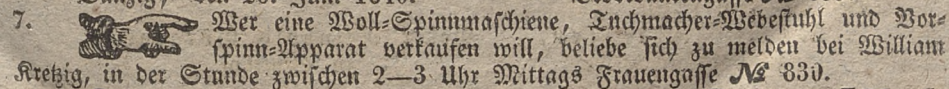 7. Wer eine Woll-Spinnmaschiene, Tuchmacher-Webestuhl und Vor-
spinn-Apparat verkaufen will, beliebe sich zu melden bei William
Kretzig, in der Stunde zwischen 2—3 Uhr Mittags Frauengasse № 830.